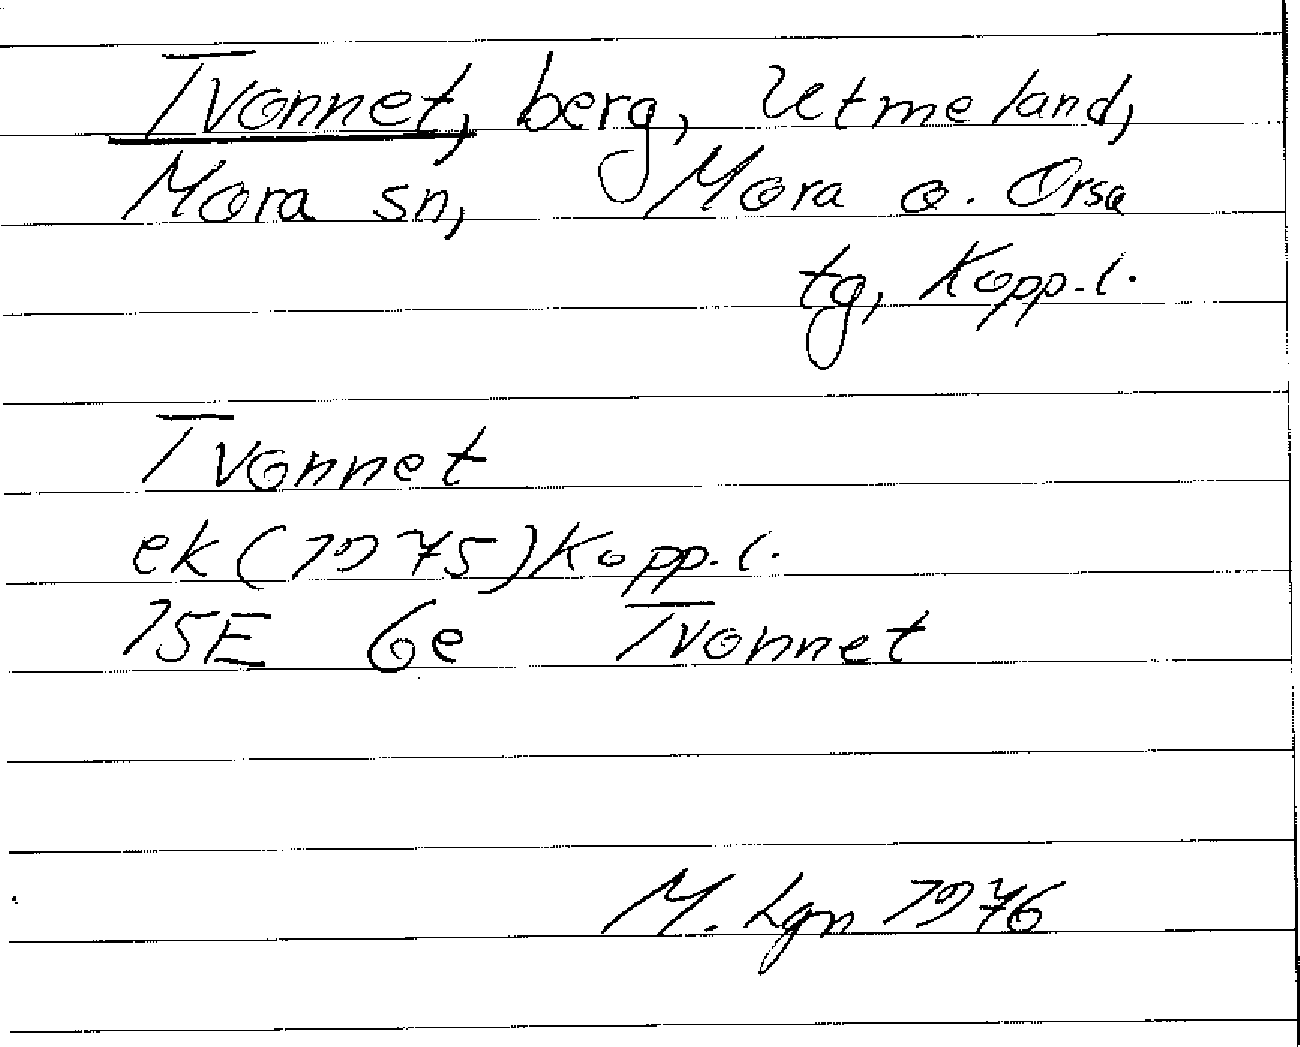 Tvonnet, berg, Utmeland,
Mora sn, Mora o. Orsa
tg, Kopp.l.
Tvonnet
ek (1975) Kopp.l.
15E 6e Tvonnet
M. Lgn 1976